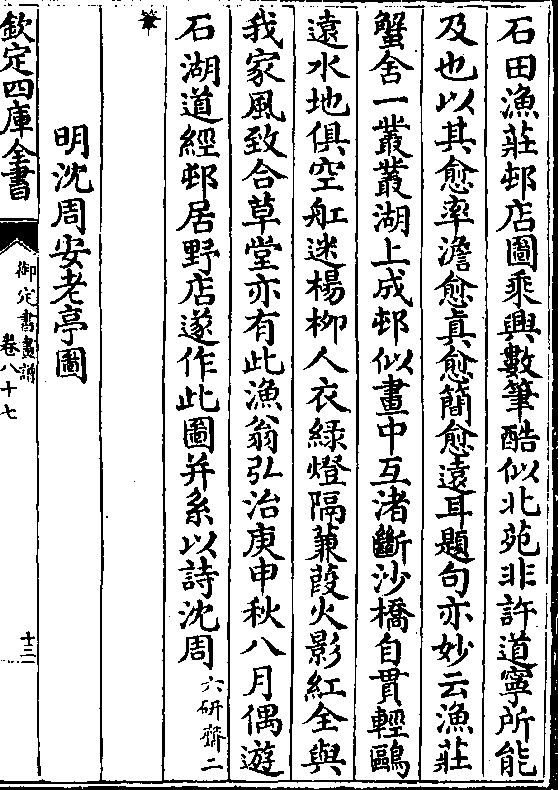 石田漁莊邨店圖乘興數筆酷似北苑非許道寧所能
及也以其愈率澹愈真愈簡愈遠耳題句亦妙云漁莊
蟹舍一叢叢湖上成邨似畫中互渚斷沙橋自貫輕鷗
遠水地俱空舡迷楊柳人衣緑燈隔蒹葭火影紅全與
我家風致合草堂亦有此漁翁弘治庚申秋八月偶遊
石湖道經邨居野店遂作此圖并系以詩沈周六研齋二
筆
明沈周安老亭圖
欽定四庫全書
御定書畫譜
卷八十七
十三